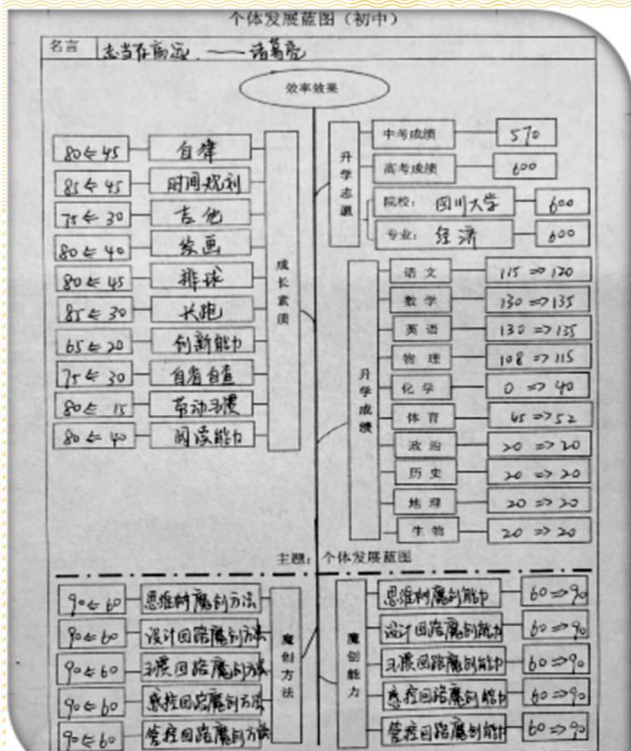 个体发展蓝图（初中）
名言 志当存高远. ——诸葛亮
效率效果
80⇐45 自律
85⇐45 时间规利
75⇐30 吉他
80⇐40 绘画
80⇐45 排球
85⇐30 长跑
65⇐20 创新能力
75⇐30 自省自查
80⇐15 劳动习惯
80⇐40 阅读能力
成长素质
升学志愿
中考成绩 570
高考成绩 600
院校： 四川大学 600
专业： 经济 600
升学成绩
语文 115⇒120
数学 130⇒135
英语 130⇒135
物理 108⇒115
化学 0⇒40
体育 45⇒52
政治 20⇒20
历史 20⇒20
地理 20⇒20
生物 20⇒20
主题：个体发展蓝图
90⇐60 思维树魔创方法
90⇐60 设计回路魔创方法
90⇐60 习惯回路魔创方法
90⇐60 感控回路魔创方法
90⇐60 管控回路魔创方法
魔创方法
魔创能力
思维树魔创能力 60⇒90
设计回路魔创能力 60⇒90
习惯回路魔创能力 60⇒90
感控回路魔创能力 60⇒90
管控回路魔创能力 60⇒90